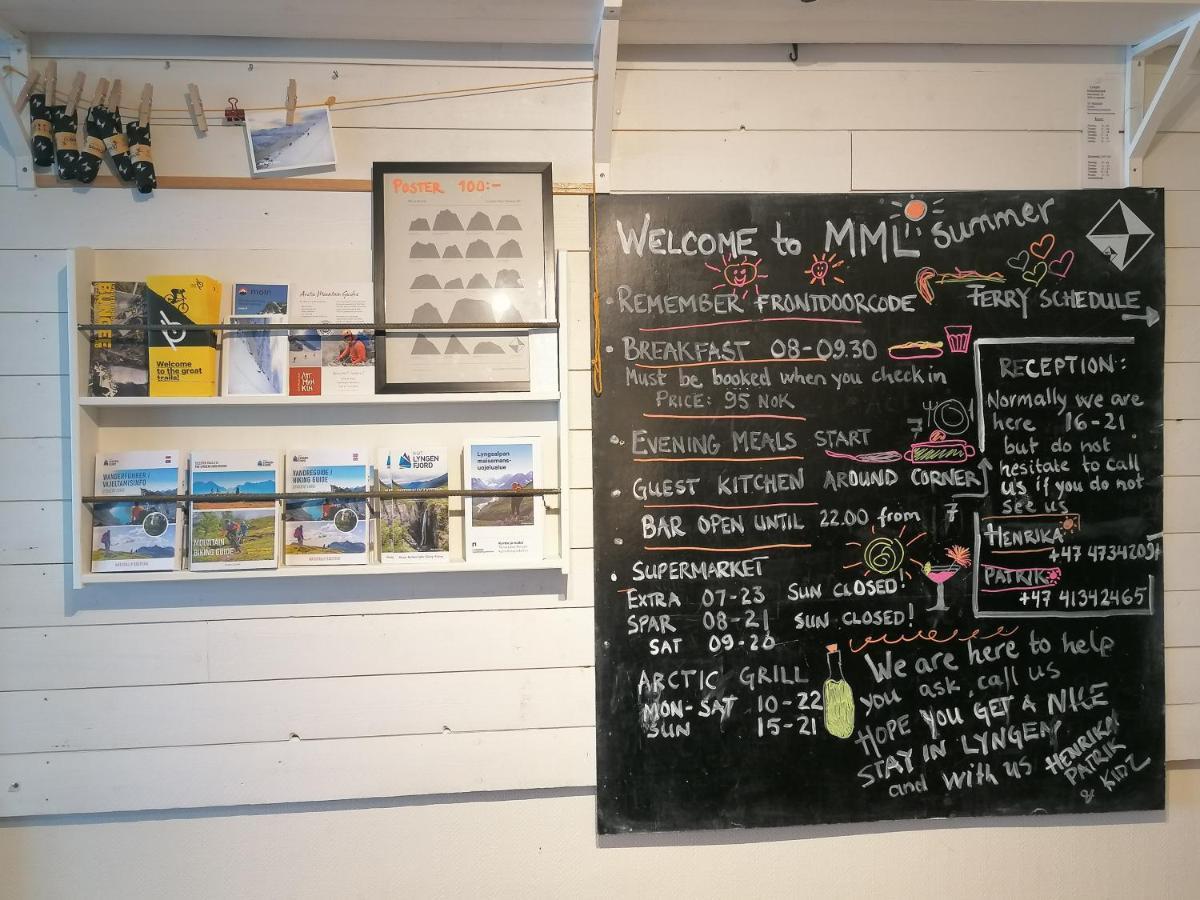 POSTER 100:-
Welcome
to the great
trails!
moln
Arctic Mountain Guides
WANDERFÜHRER /
VAELTAMISINFO
MOUNTAIN
BIKING GUIDE
VANDREGUIDE /
HIKING GUIDE
VISIT
LYNGEN
FJORD
Lyngsalpan
maisemans-
uojelualue
WELCOME to MML summer
REMEMBER FRONTDOORCODE
FERRY SCHEDULE
BREAKFAST 08-09.30
Must be booked when you check in
PRICE: 95 NOK
EVENING MEALS START 7
GUEST KITCHEN AROUND CORNER
BAR OPEN UNTIL 22.00 from 7
SUPERMARKET
EXTRA 07-23 SUN CLOSED!
SPAR 08-21 SUN CLOSED!
SAT 09-20
ARCTIC GRILL
MON-SAT 10-22
SUN 15-21
RECEPTION:
Normally we are
here 16-21
but do not
hesitate to call
us if you do not
see us
HENRIKA
+47 47342091
PATRIK
+47 41342465
We are here to help
you ask, call us
HOPE YOU GET A NICE
STAY IN LYNGEN
and with us HENRIKA
PATRIK
& KIDZ